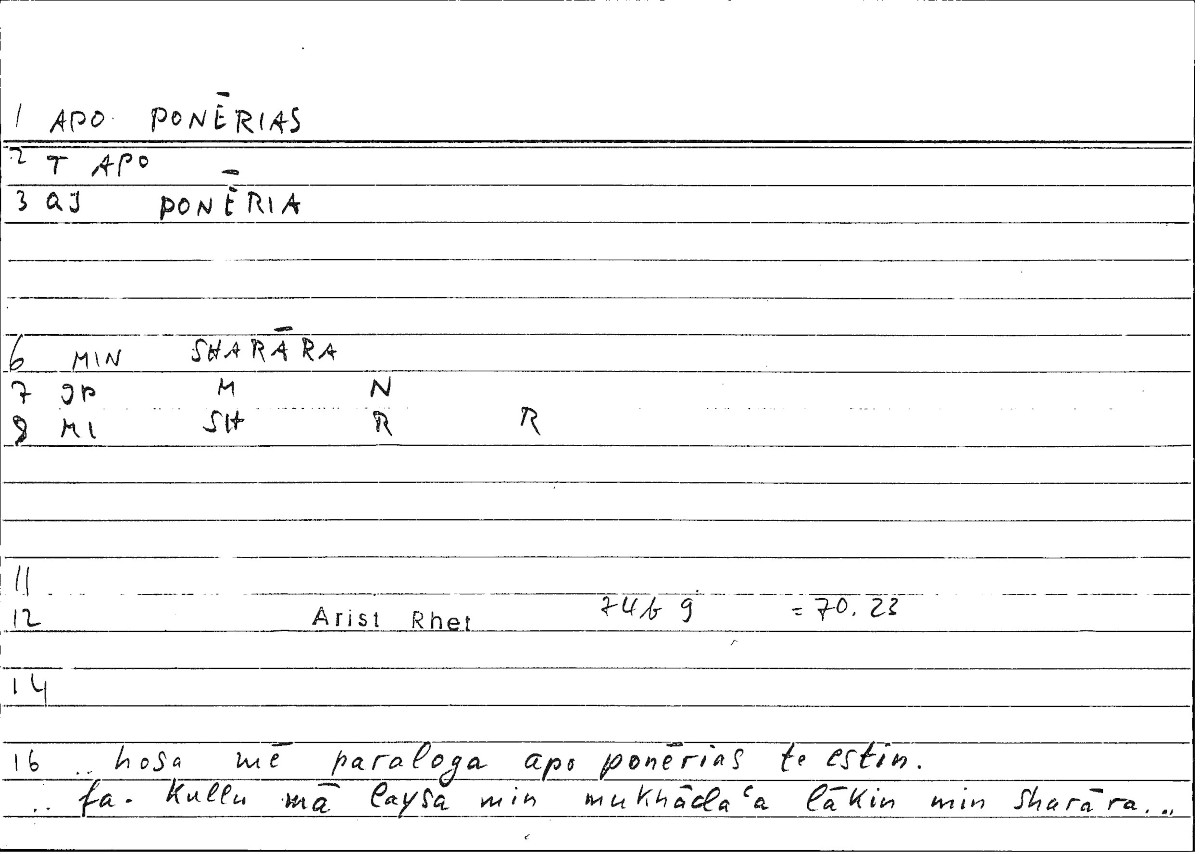 1 APO PONĒRIAS
2 T APO
3 QJ PONĒRIA
6 MIN SHARĀRA
7 JP M N
8 MI SH R R
11
12 Arist Rhet 74b 9 = 70.23
14
16 .. hosa mē paraloga apo ponērias te estin.
.. fa- kullu mā laysa min mukhādaʿa lākin min sharāra...